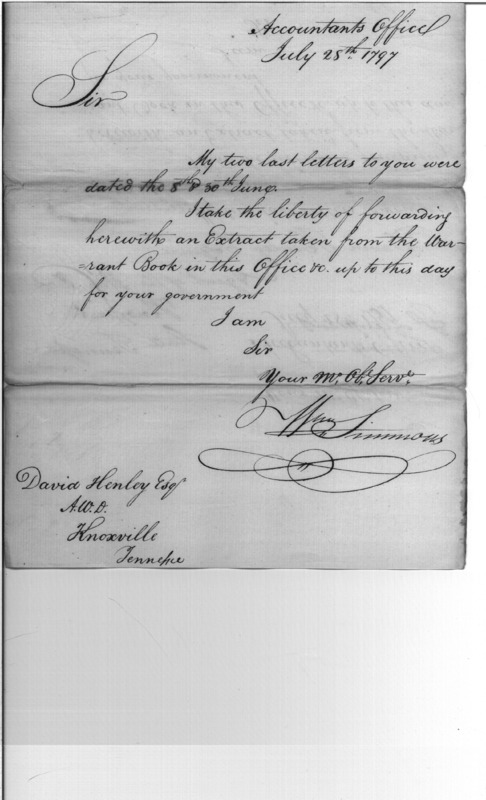 Accountants Office
July 28th 1797
Sir
My two last letters to you were
dated the 8th & 30th June.
I take the liberty of forwarding
herewith an Extract taken from the War-
=rant Book in this Office &c. up to this day
for your government
I am
Sir
Your Mo. Obt. Servt.
Wm Simmons
David Henley Esqr
A.W.D.
Knoxville
Tennessee